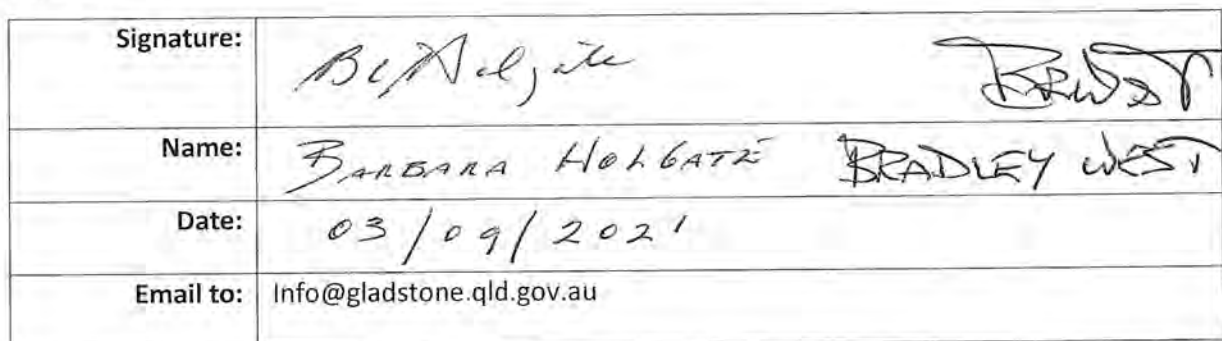 Signature: BCHolgate BRWEST
Name: BARBARA HOLGATE BRADLEY WEST
Date: 03/09/2021
Email to: Info@gladstone.qld.gov.au